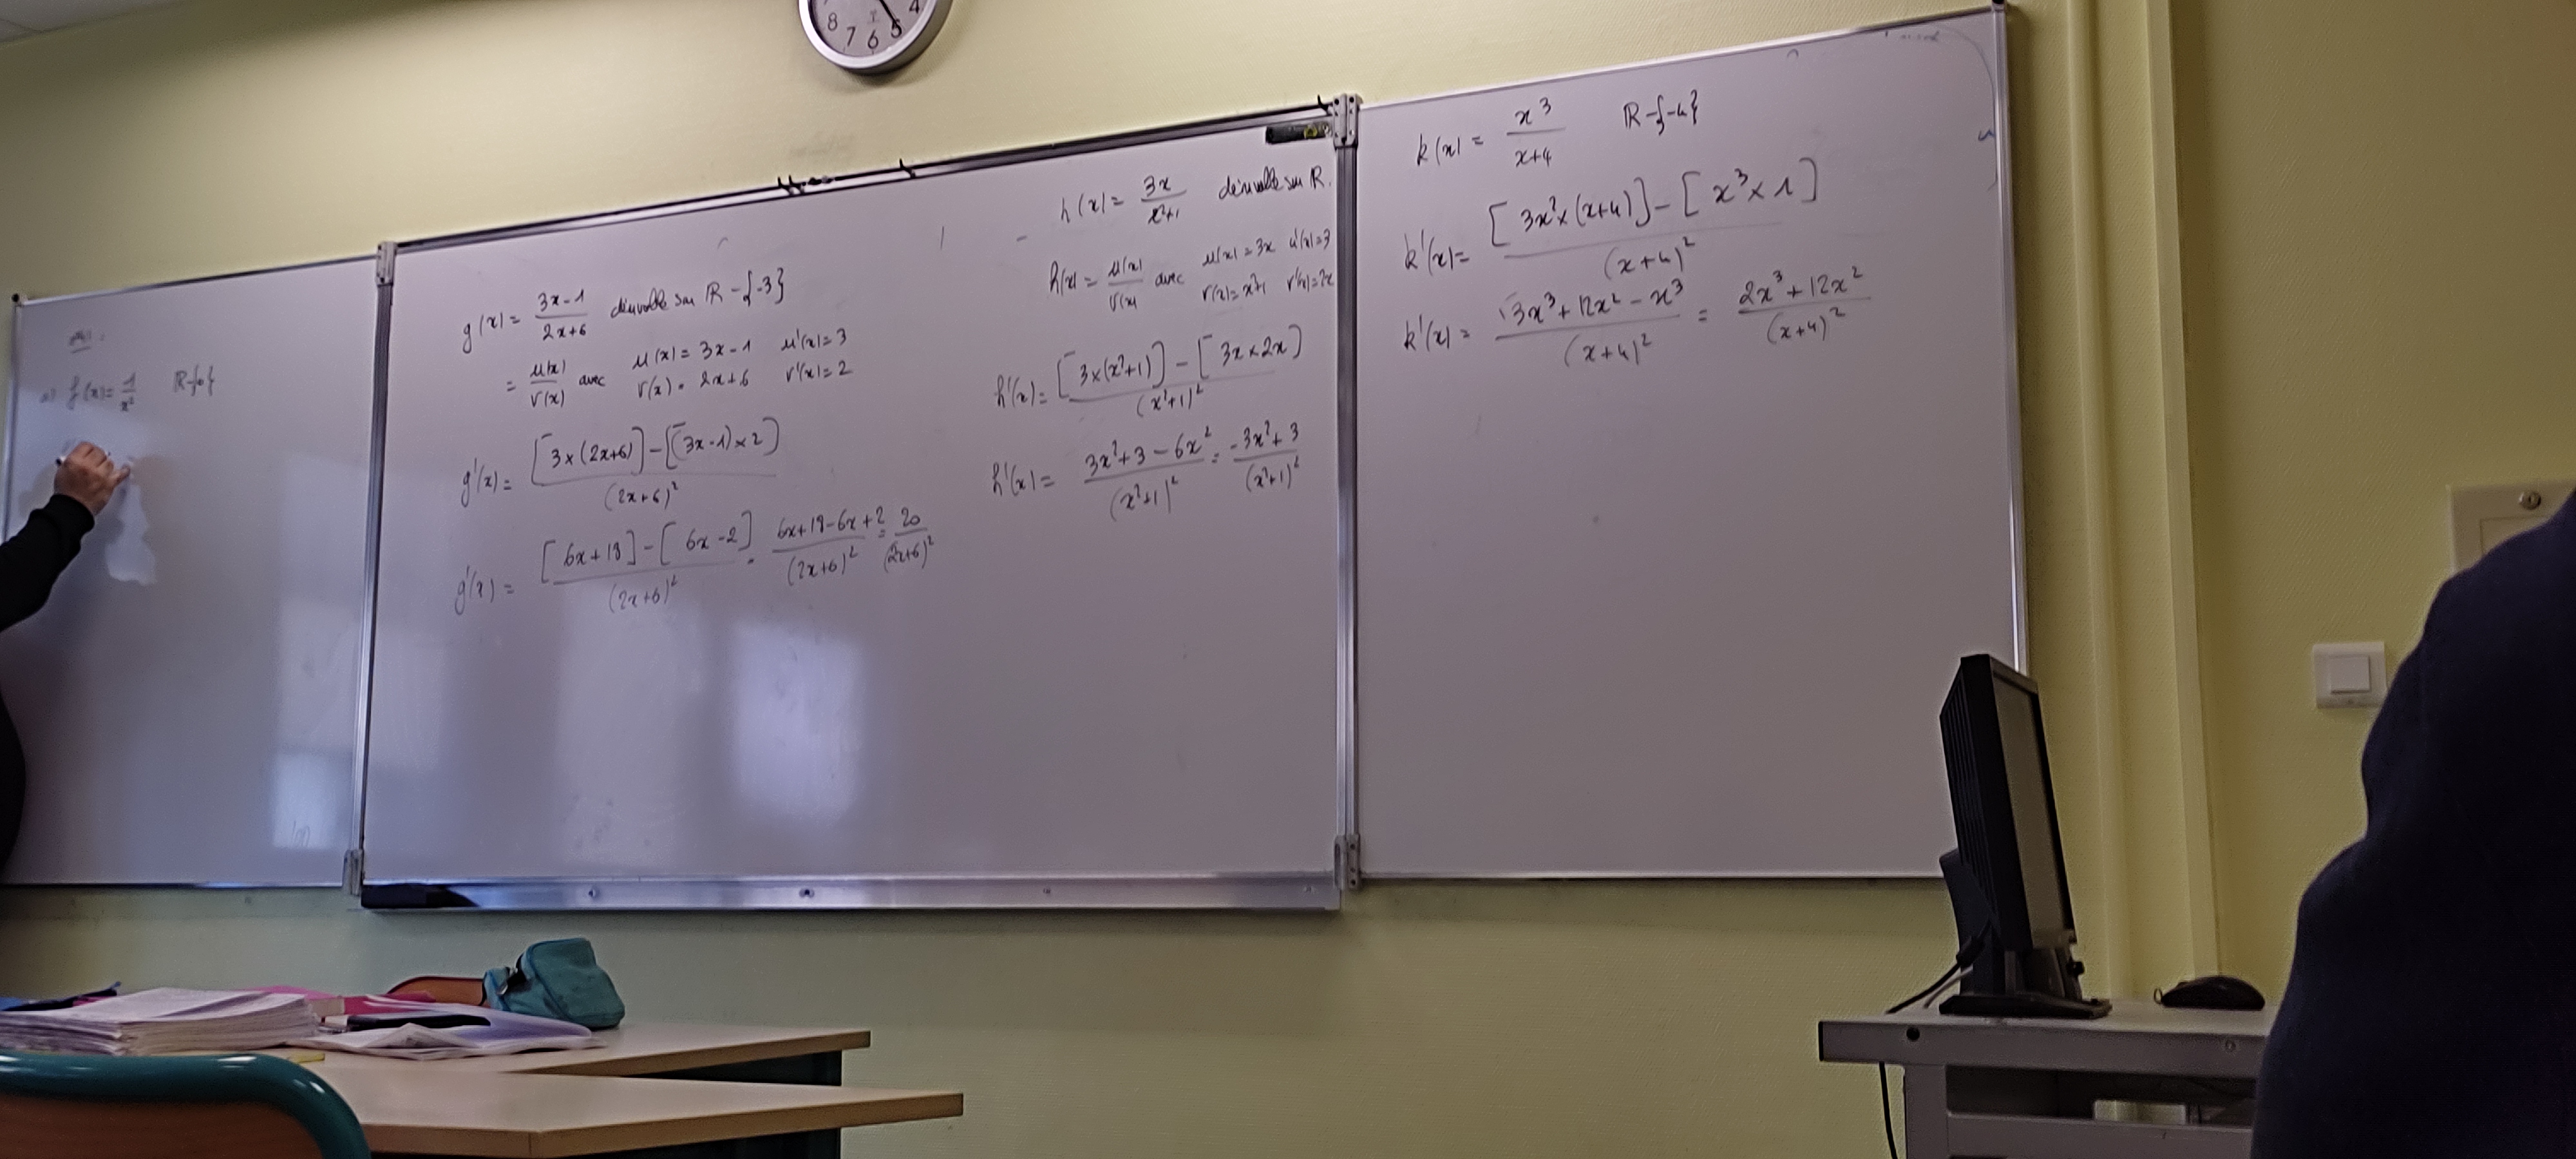 a) f(x) = 1/x² R-{0}
g(x) = (3x-1)/(2x+6) dérivable sur R-{-3}
= u(x)/v(x) avec u(x) = 3x-1 u'(x) = 3
v(x) = 2x+6 v'(x) = 2
g'(x) = ([3×(2x+6)]-[(3x-1)×2])/(2x+6)²
g'(x) = ([6x+18]-[6x-2])/(2x+6)² = (6x+18-6x+2)/(2x+6)² = 20/(2x+6)²
h(x) = 3x/(x²+1) dérivable sur R.
h(x) = u(x)/v(x) avec u(x) = 3x u'(x) = 3
v(x) = x²+1 v'(x) = 2x
h'(x) = ([3×(x²+1)]-[3x×2x])/(x²+1)²
h'(x) = (3x²+3-6x²)/(x²+1)² = (-3x²+3)/(x²+1)²
k(x) = x³/(x+4) R-{-4}
k'(x) = ([3x²×(x+4)]-[x³×1])/(x+4)²
k'(x) = (3x³+12x²-x³)/(x+4)² = (2x³+12x²)/(x+4)²
8 7 6 5 4